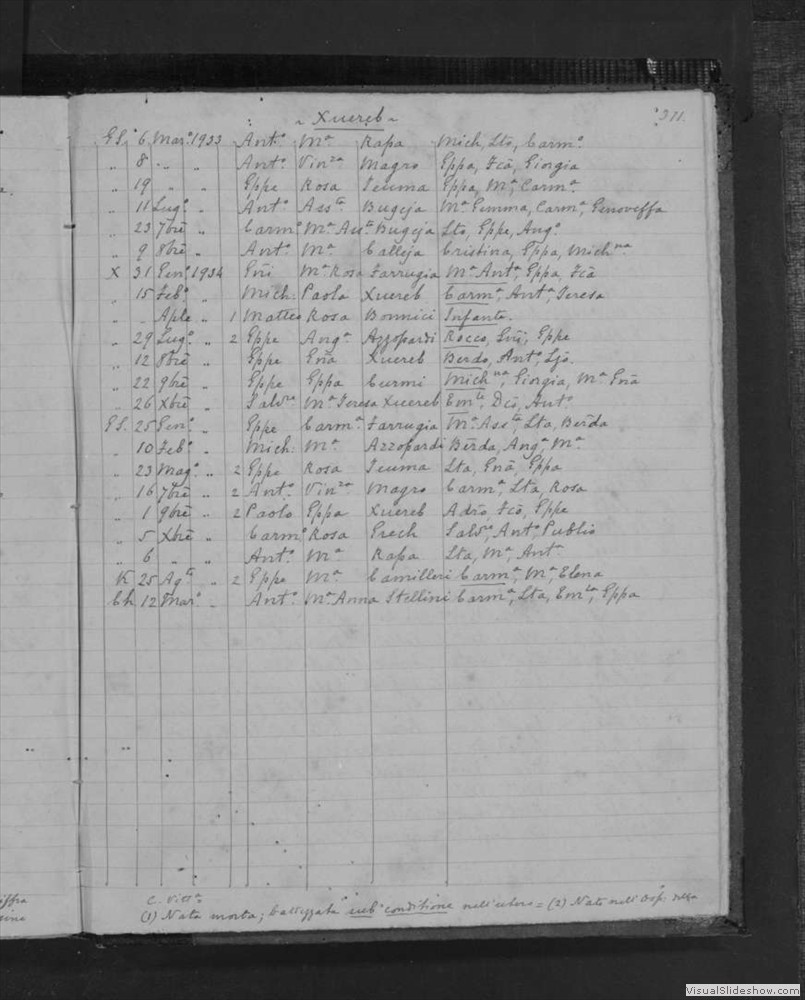 ~ Xuereb ~
311.
G.S. 6 Mar.o 1933 Ant.o M.a Rapa Mich, Lto, Carm.o
„ 8 „ „ Ant.o Vin.za Magro Gppa, Fca, Giorgia
„ 19 „ „ Gppe Rosa Sciuma Gppa, M.a, Carm.a
„ 11 Lug.o „ Ant.o Ass.ta Bugeja M.a Gemma, Carm.a, Genoveffa
„ 23 7bre „ Carm.o M.a Ass.ta Bugeja Lto, Gppe, Ang.o
„ 9 8bre „ Ant.o M.a Calleja Cristina, Gppa, Mich.na
X 31 Gen.o 1934 Gñi M.a Rosa Farrugia M.a Ant.a, Gppa, Fca
„ 15 Feb.o „ Mich. Paola Xuereb Carm.a, Ant.a, Teresa
„ Aple „ 1 Matteo Rosa Bonnici Infante.
„ 29 Lug.o „ 2 Gppe Ang.a Azzopardi Rocco, Gppe
„ 12 8bre „ Gppe Gña Xuereb Berdo, Ant.o,
„ 22 9bre „ Gppe Gppa Curmi Mich.na, Giorgia, M.a Gña
„ 26 Xbre „ Salv.re M.a Teresa Xuereb Em.le, Dco, Ant.o
G.S. 25 Gen.o „ Gppe Carm.a Farrugia M.a Ass.ta, Lta, Berda
„ 10 Feb.o „ Mich. M.a Azzopardi Berda, Ang.a, M.a
„ 23 Mag.o „ 2 Gppe Rosa Sciuma Lta, Gña, Gppa
„ 16 7bre „ 2 Ant.o Vin.za Magro Carm.a, Lta, Rosa
„ 1 9bre „ 2 Paolo Gppa Xuereb Adro, Fco, Gppe
„ 5 Xbre „ Carm.o Rosa Grech Salv.re, Ant.o, Publio
„ 6 „ „ Ant.o M.a Rapa Lta, M.a, Ant.a
K 25 Ag.to „ 2 Gppe M.a Camilleri Carm.a, M.a, Elena
Ch 12 Mar.o „ Ant.o M.a Anna Stellini Carm.a, Lta, Em.la, Gppa
C. Vitt.a
(1) Nata morta; battezzata sub conditione nell'utero = (2) Nato nell' Osp. della
VisualSlideshow.com